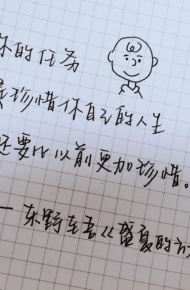 你的任务
是珍惜你自己的人生
还要比以前更加珍惜。
——东野圭吾《盛夏的方